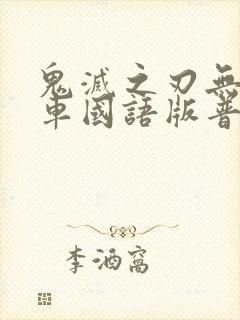 鬼滅之刃無
車國語版普
李酒窩